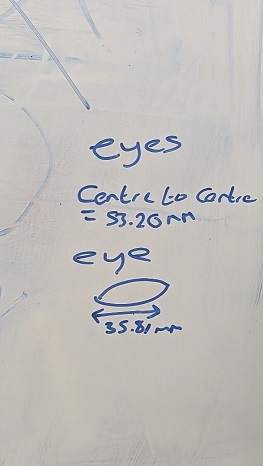 eyes
Centre to Centre
= 53.20mm
eye
35.81mm